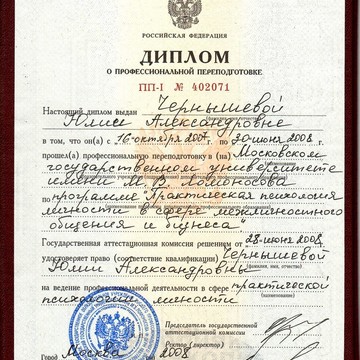 РОССИЙСКАЯ ФЕДЕРАЦИЯ
ДИПЛОМ
О ПРОФЕССИОНАЛЬНОЙ ПЕРЕПОДГОТОВКЕ
ПП-I № 402071
Настоящий диплом выдан Чернышевой
Юлии Александровне
в том, что он(а) с 16 октября 2007 г. по 30 июня 2008 г.
прошел(а) профессиональную переподготовку в (на) Московском
государственном университете
имени М.В. Ломоносова
по программе "Практическая психология
личности в сфере межличностного
общения и бизнеса"
Государственная аттестационная комиссия решением от 28 июня 2008
удостоверяет право (соответствие квалификации) Чернышевой
(фамилия, имя, отчество)
Юлии Александровны
на ведение профессиональной деятельности в сфере практической
(наименование)
психологии личности
Председатель государственной
аттестационной комиссии
Ректор (директор)
Город Москва 2008